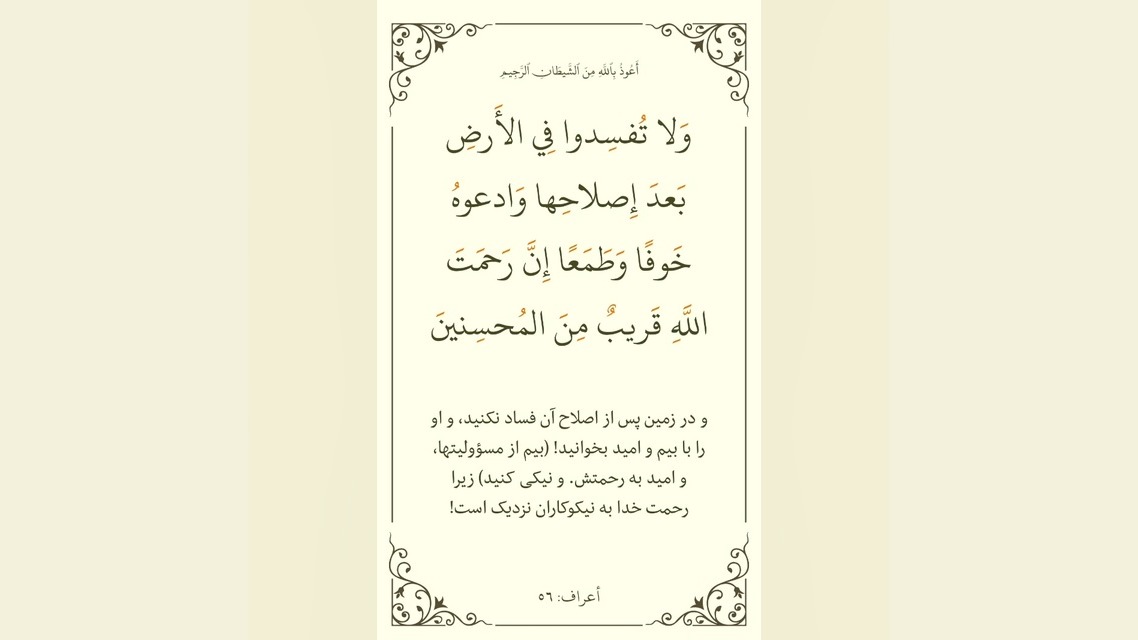 أَعُوذُ بِاللَّهِ مِنَ الشَّيطَانِ الرَّجِيمِ
وَلا تُفسِدوا فِي الأَرضِ
بَعدَ إِصلاحِها وَادعوهُ
خَوفًا وَطَمَعًا إِنَّ رَحمَتَ
اللَّهِ قَريبٌ مِنَ المُحسِنينَ
و در زمین پس از اصلاح آن فساد نکنید، و او
را با بیم و امید بخوانید! (بیم از مسؤولیتها،
و امید به رحمتش. و نیکی کنید) زیرا
رحمت خدا به نیکوکاران نزدیک است!
أعراف: ٥٦